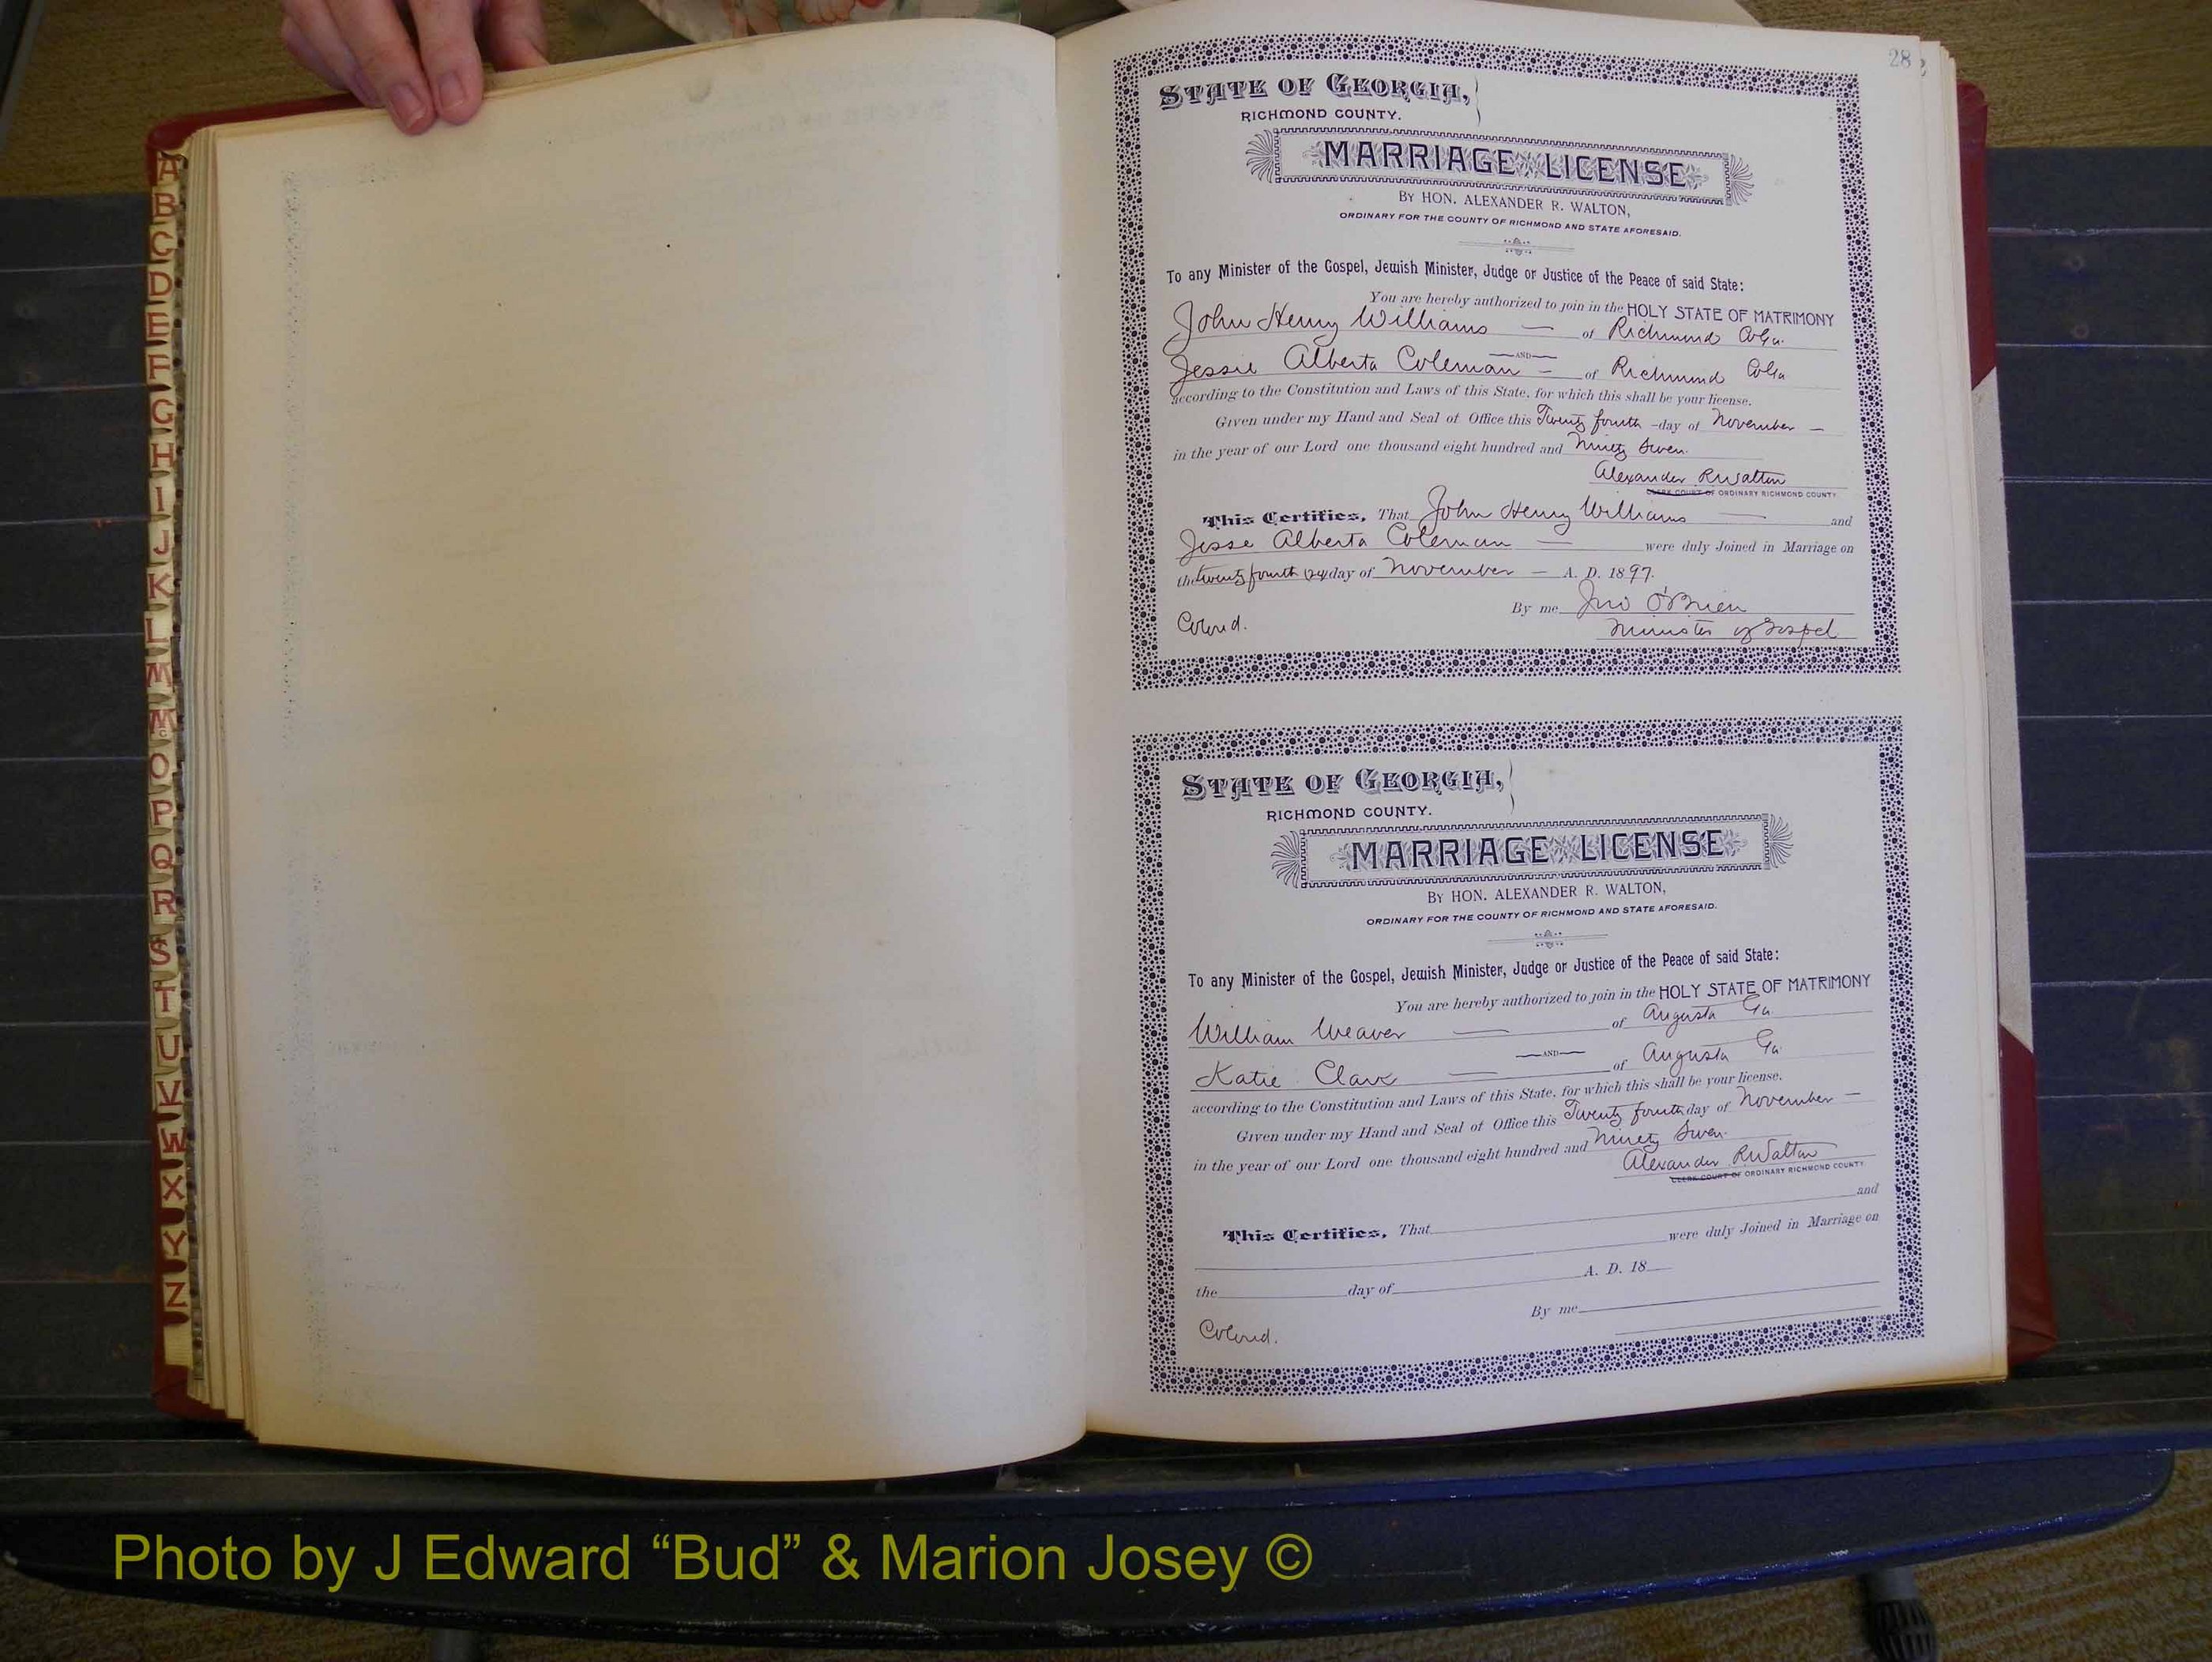 28
STATE OF GEORGIA,
RICHMOND COUNTY.
MARRIAGE LICENSE
BY HON. ALEXANDER R. WALTON,
ORDINARY FOR THE COUNTY OF RICHMOND AND STATE AFORESAID.
To any Minister of the Gospel, Jewish Minister, Judge or Justice of the Peace of said State:
You are hereby authorized to join in the HOLY STATE OF MATRIMONY
John Henry Williams — of Richmond Co Ga.
AND
Jessie Alberta Coleman — of Richmond Co Ga
according to the Constitution and Laws of this State, for which this shall be your license.
Given under my Hand and Seal of Office this Twenty fourth day of November —
in the year of our Lord one thousand eight hundred and Ninety Seven.
Alexander R Walton
CLERK COURT OF ORDINARY RICHMOND COUNTY
This Certifies, That John Henry Williams — and
Jesse Alberta Coleman — were duly Joined in Marriage on
the twenty fourth (24) day of November — A. D. 1897.
By me Jno O'Brien
Colored.
Minister of Gospel
STATE OF GEORGIA,
RICHMOND COUNTY.
MARRIAGE LICENSE
BY HON. ALEXANDER R. WALTON,
ORDINARY FOR THE COUNTY OF RICHMOND AND STATE AFORESAID.
To any Minister of the Gospel, Jewish Minister, Judge or Justice of the Peace of said State:
You are hereby authorized to join in the HOLY STATE OF MATRIMONY
William Weaver — of Augusta Ga.
AND
Katie Clark — of Augusta Ga.
according to the Constitution and Laws of this State, for which this shall be your license.
Given under my Hand and Seal of Office this Twenty fourth day of November —
in the year of our Lord one thousand eight hundred and Ninety Seven.
Alexander R Walton
CLERK COURT OF ORDINARY RICHMOND COUNTY
This Certifies, That and
were duly Joined in Marriage on
the day of A. D. 18
By me
Colored.
A
B
C
D
E
F
G
H
I
J
K
L
M
Mc
O
P
Q
R
S
T
U
V
W
X
Y
Z
Photo by J Edward “Bud” & Marion Josey ©